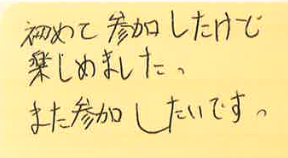 初めて参加したけど
楽しめました。
また参加したいです。